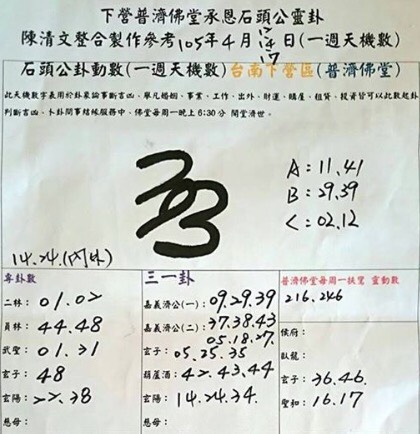 下營普濟佛堂承恩石頭公靈卦
陳清文整合製作參考105年4月12/14/17日(一週天機數)
石頭公卦動數(一週天機數)台南下營區(普濟佛堂)
此天機數字表用於卦象論事斷吉凶、舉凡婚姻、事業、工作、出外、財運、購屋、租賃、投資皆可以此數起卦
判斷吉凶、卜卦問事結緣服務中、佛堂每周一晚上6:30分 開堂濟世。
A:11.41
B:29.39
C:02.12
14.24.(內外)
專卦數
二林:01.02
員林:44.48
武聖:01.31
玄子:48
玄陽:22.38
慈母:
三一卦
嘉義濟公(一):09.29.39
嘉義濟公(二):37.38.43
05.18.27.
玄子:05.25.35
葫蘆酒:42.43.44
玄陽:14.24.34.
慈母:
普濟佛堂每周一扶鸞 靈動數
216.246
侯府:
臥龍:
玄子:36.46.
聖和:16.17